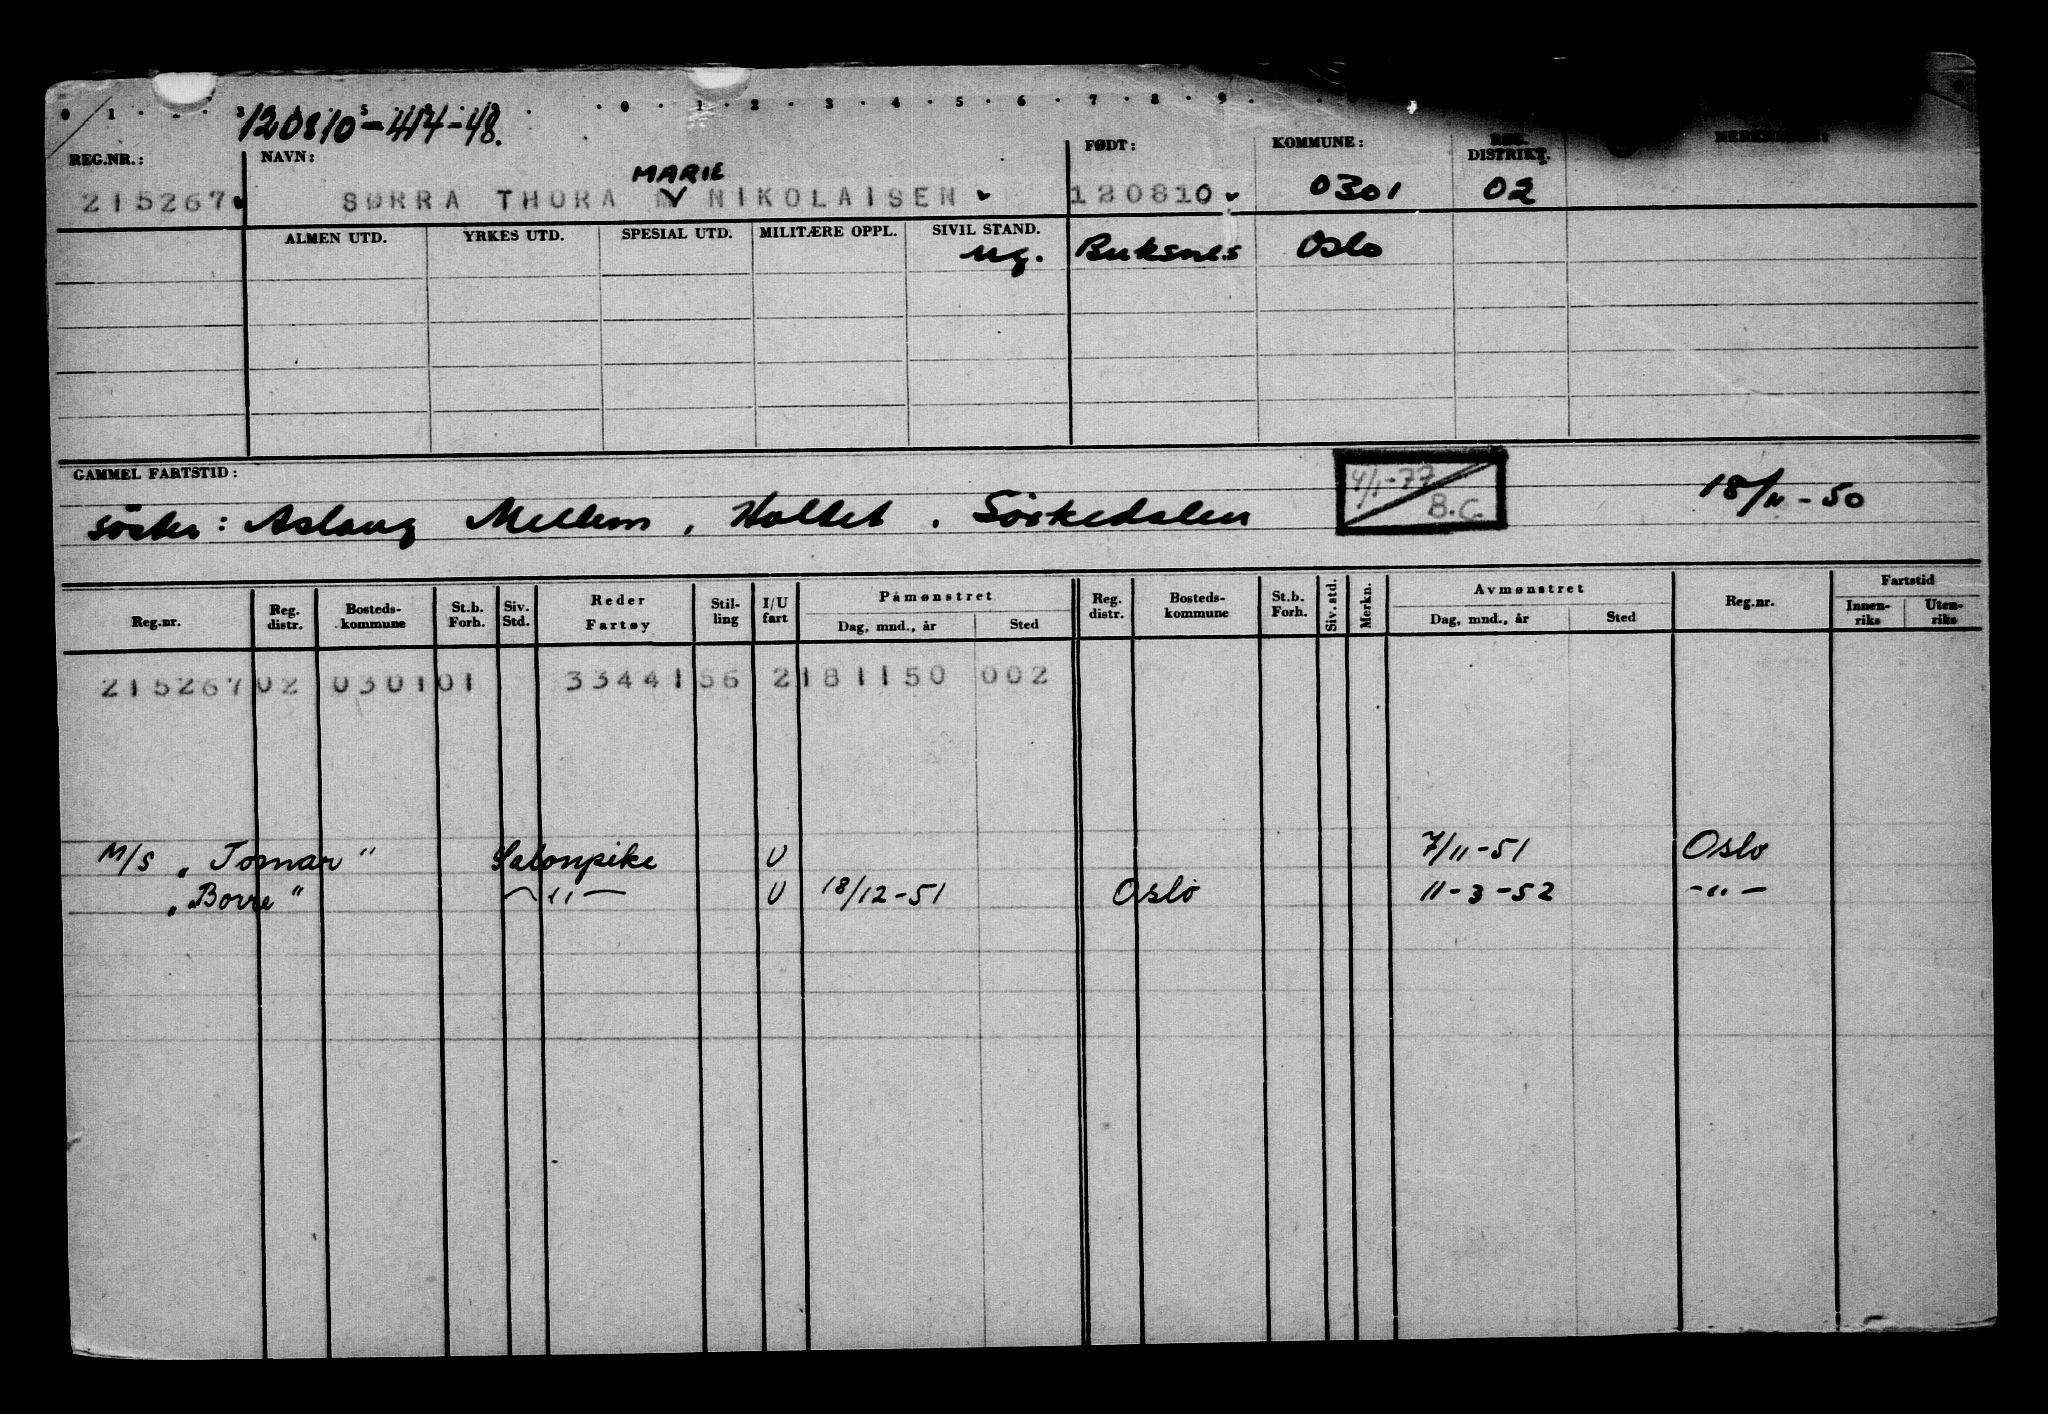 0 1 3 5 0 1 2 3 4 5 6 7 8 9
120810-414-48.
REG.NR.: NAVN: FØDT: KOMMUNE: REG. DISTRIKT.
MARIE
215267 SØRRA THORA M NIKOLAISEN 120810 0301 02
ALMEN UTD. YRKES UTD. SPESIAL UTD. MILITÆRE OPPL. SIVIL STAND.
ug. Buksnes Oslo
GAMMEL FARTSTID: 4/1-77 18/11-50
søster: Aslaug Mellem, Holtet. Sörkedalen B.C.
Reg.nr. Reg. distr. Bosteds- kommune St.b. Forh. Siv. Std. Reder Fartøy Stil- ling I/U fart Påmønstret Dag, mnd., år Sted Reg. distr. Bosteds- kommune St.b. Forh. Siv. std. Merkn. Avmønstret Dag, mnd., år Sted Reg.nr. Fartstid Innen- riks Uten- riks
215267 02 0301 01 33441 56 2 181150 002
M/S "Tomar" Salonpike U 7/11-51 Oslo
"Borre" -"- U 18/12-51 Oslo 11-3-52 -"-